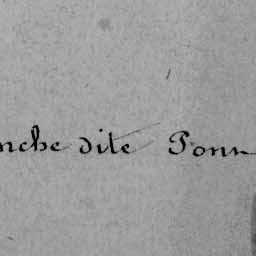 nche dite Ponn